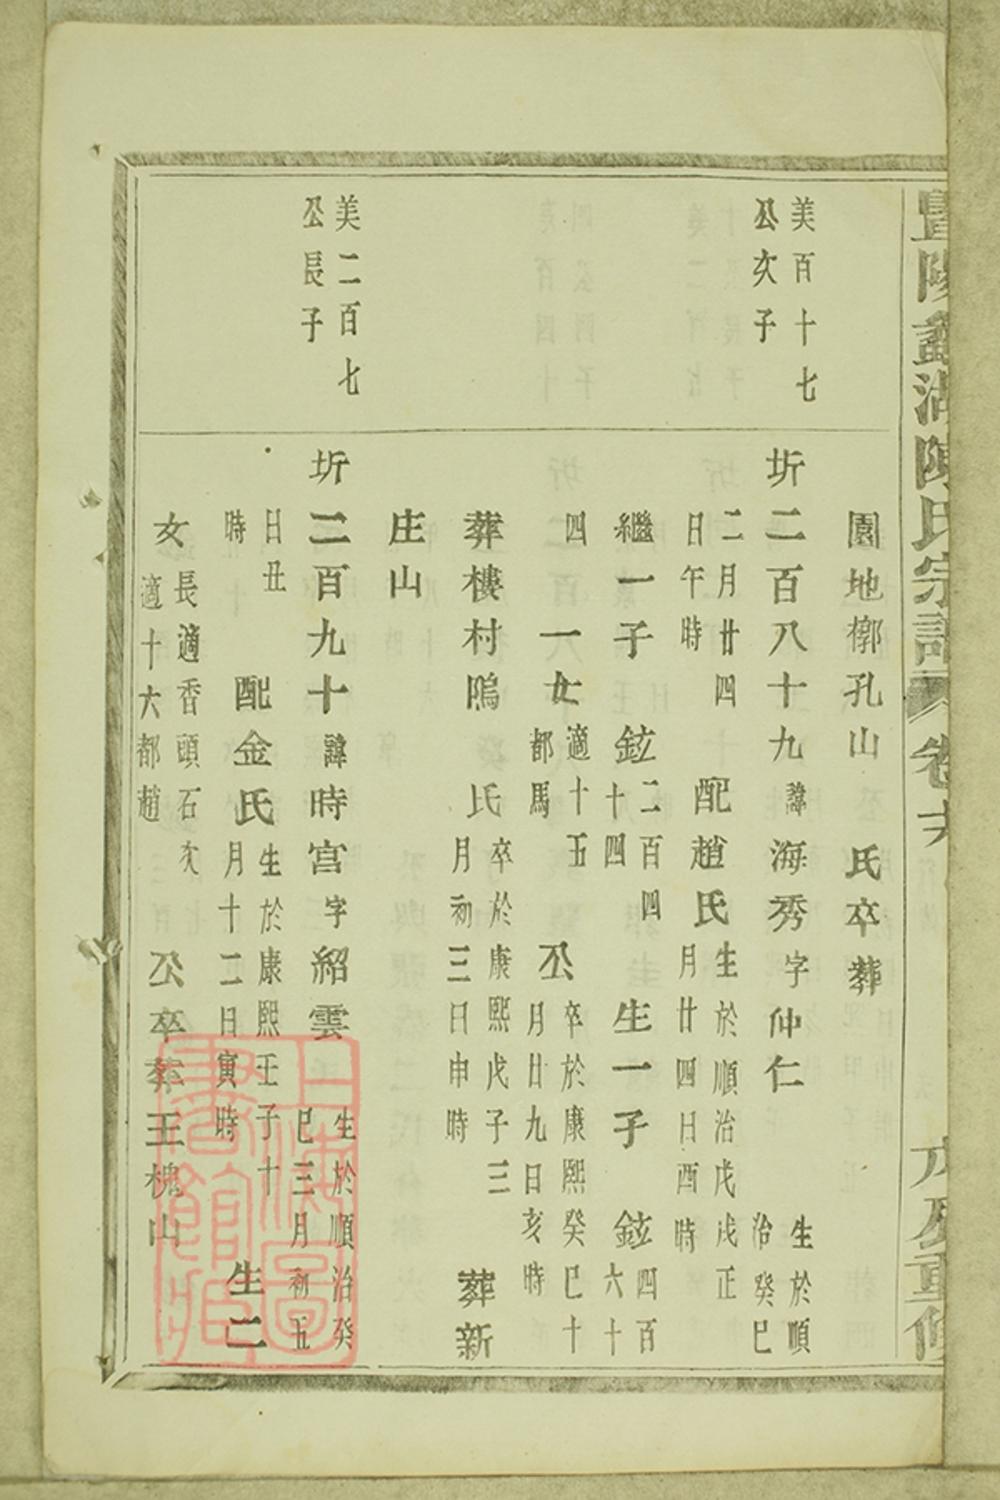 暨陽
湖陳氏宗譜
卷六
重修
園地槨孔山 氏卒葬
美百十七
公次子
圻二百八十九諱海秀字仲仁生於順
治癸巳
二月廿四
日午時
配趙氏生於順治戊戌正
月廿四日酉時
繼一子鉉二百四
十四
生一子鉉四百
六十
四
一女適十五
都馬
公卒於康熙癸巳十
月廿九日亥時
葬樓村隖 氏卒於康熙戊子三
月初三日申時
葬新
庄山
美二百七
公長子
圻二百九十諱時宮字紹雲生於順治癸
巳三月初五
日丑
時
配金氏生於康熙壬子十
月十二日寅時
生二
女長適香頭石次
適十六都趙
公卒葬王槐山
上海圖
書館藏